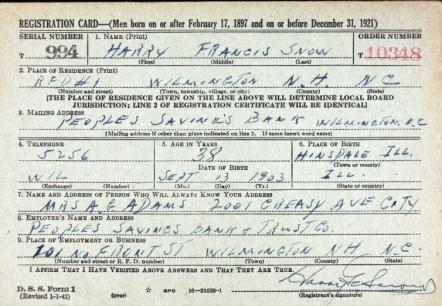 REGISTRATION CARD—(Men born on or after February 17, 1897 and on or before December 31, 1921)
SERIAL NUMBER 1. NAME (Print) ORDER NUMBER
T 994 HARRY FRANCIS SNOW T 10348
(First) (Middle) (Last)
2. PLACE OF RESIDENCE (Print)
RFD#1 WILMINGTON N.H N.C
(Number and street) (Town, township, village, or city) (County) (State)
[THE PLACE OF RESIDENCE GIVEN ON THE LINE ABOVE WILL DETERMINE LOCAL BOARD
JURISDICTION; LINE 2 OF REGISTRATION CERTIFICATE WILL BE IDENTICAL]
3. MAILING ADDRESS
PEOPLES SAVINGS BANK WILMINGTON, N.C
[Mailing address if other than place indicated on line 2. If same insert word same]
4. TELEPHONE 5. AGE IN YEARS 6. PLACE OF BIRTH
5256 38 HINSDALE ILL.
DATE OF BIRTH (Town or county)
WIL SEPT 13 1903 ILL.
(Exchange) (Number) (Mo.) (Day) (Yr.) (State or country)
7. NAME AND ADDRESS OF PERSON WHO WILL ALWAYS KNOW YOUR ADDRESS
MRS A.E ADAMS 2001 AVE CITY
8. EMPLOYER'S NAME AND ADDRESS
PEOPLES SAVINGS BANK & TRUST CO.
9. PLACE OF EMPLOYMENT OR BUSINESS
NO. FRONT ST WILMINGTON NH N.C.
(Number and street or R. F. D. number) (Town) (County) (State)
I AFFIRM THAT I HAVE VERIFIED ABOVE ANSWERS AND THAT THEY ARE TRUE.
D. S. S. Form 1 GPO 16—21630-1
(Revised 1-1-42) (over) (Registrant's signature)